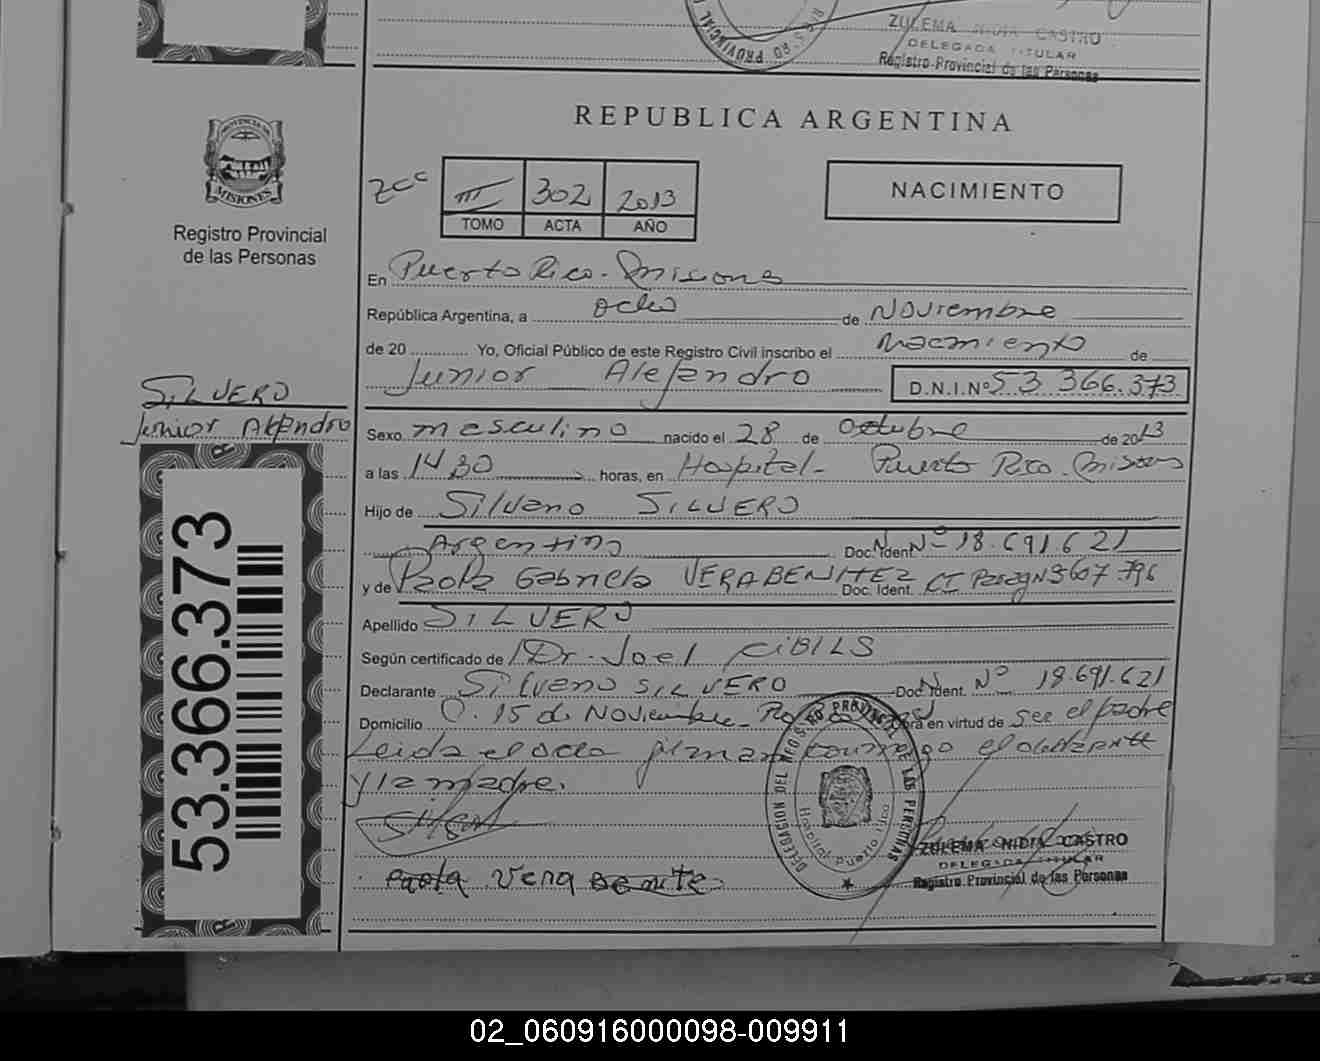 REGISTRO PROVINCIAL
ZULEMA NIDIA CASTRO
DELEGADA TITULAR
Registro Provincial de las Personas
REPUBLICA ARGENTINA
PROVINCIA DE
MISIONES
Registro Provincial
de las Personas
2cc III 302 2013
TOMO ACTA AÑO
NACIMIENTO
En Puerto Rico - Misiones
República Argentina, a ocho de Noviembre
de 20 ............ Yo, Oficial Público de este Registro Civil inscribo el Nacimiento de
Junior Alejandro D.N.I.Nº 53.366.373
SILVERO
Junior Alejandro
Sexo masculino nacido el 28 de octubre de 2013
a las 14 30 horas, en Hospital - Puerto Rico - Misiones
Hijo de Silvano SILVERO
Argentino Doc. Ident. Nº 18.691.621
y de Paola Gabriela VERA BENITEZ Doc. Ident. CI Parag Nº
Apellido SILVERO
Según certificado de Dr. Joel CIBILS
Declarante Silvano SILVERO Doc. Ident. Nº 18.691.621
Domicilio 15 de Noviembre Obra en virtud de ser el padre
Leida el acta firman conmigo el declarante
y la madre.
53.366.373
DELEGACION DEL REGISTRO PROVINCIAL DE LAS PERSONAS
Hospital Puerto Rico
ZULEMA NIDIA CASTRO
DELEGADA TITULAR
Registro Provincial de las Personas
Paola Vera Benitez
02_060916000098-009911